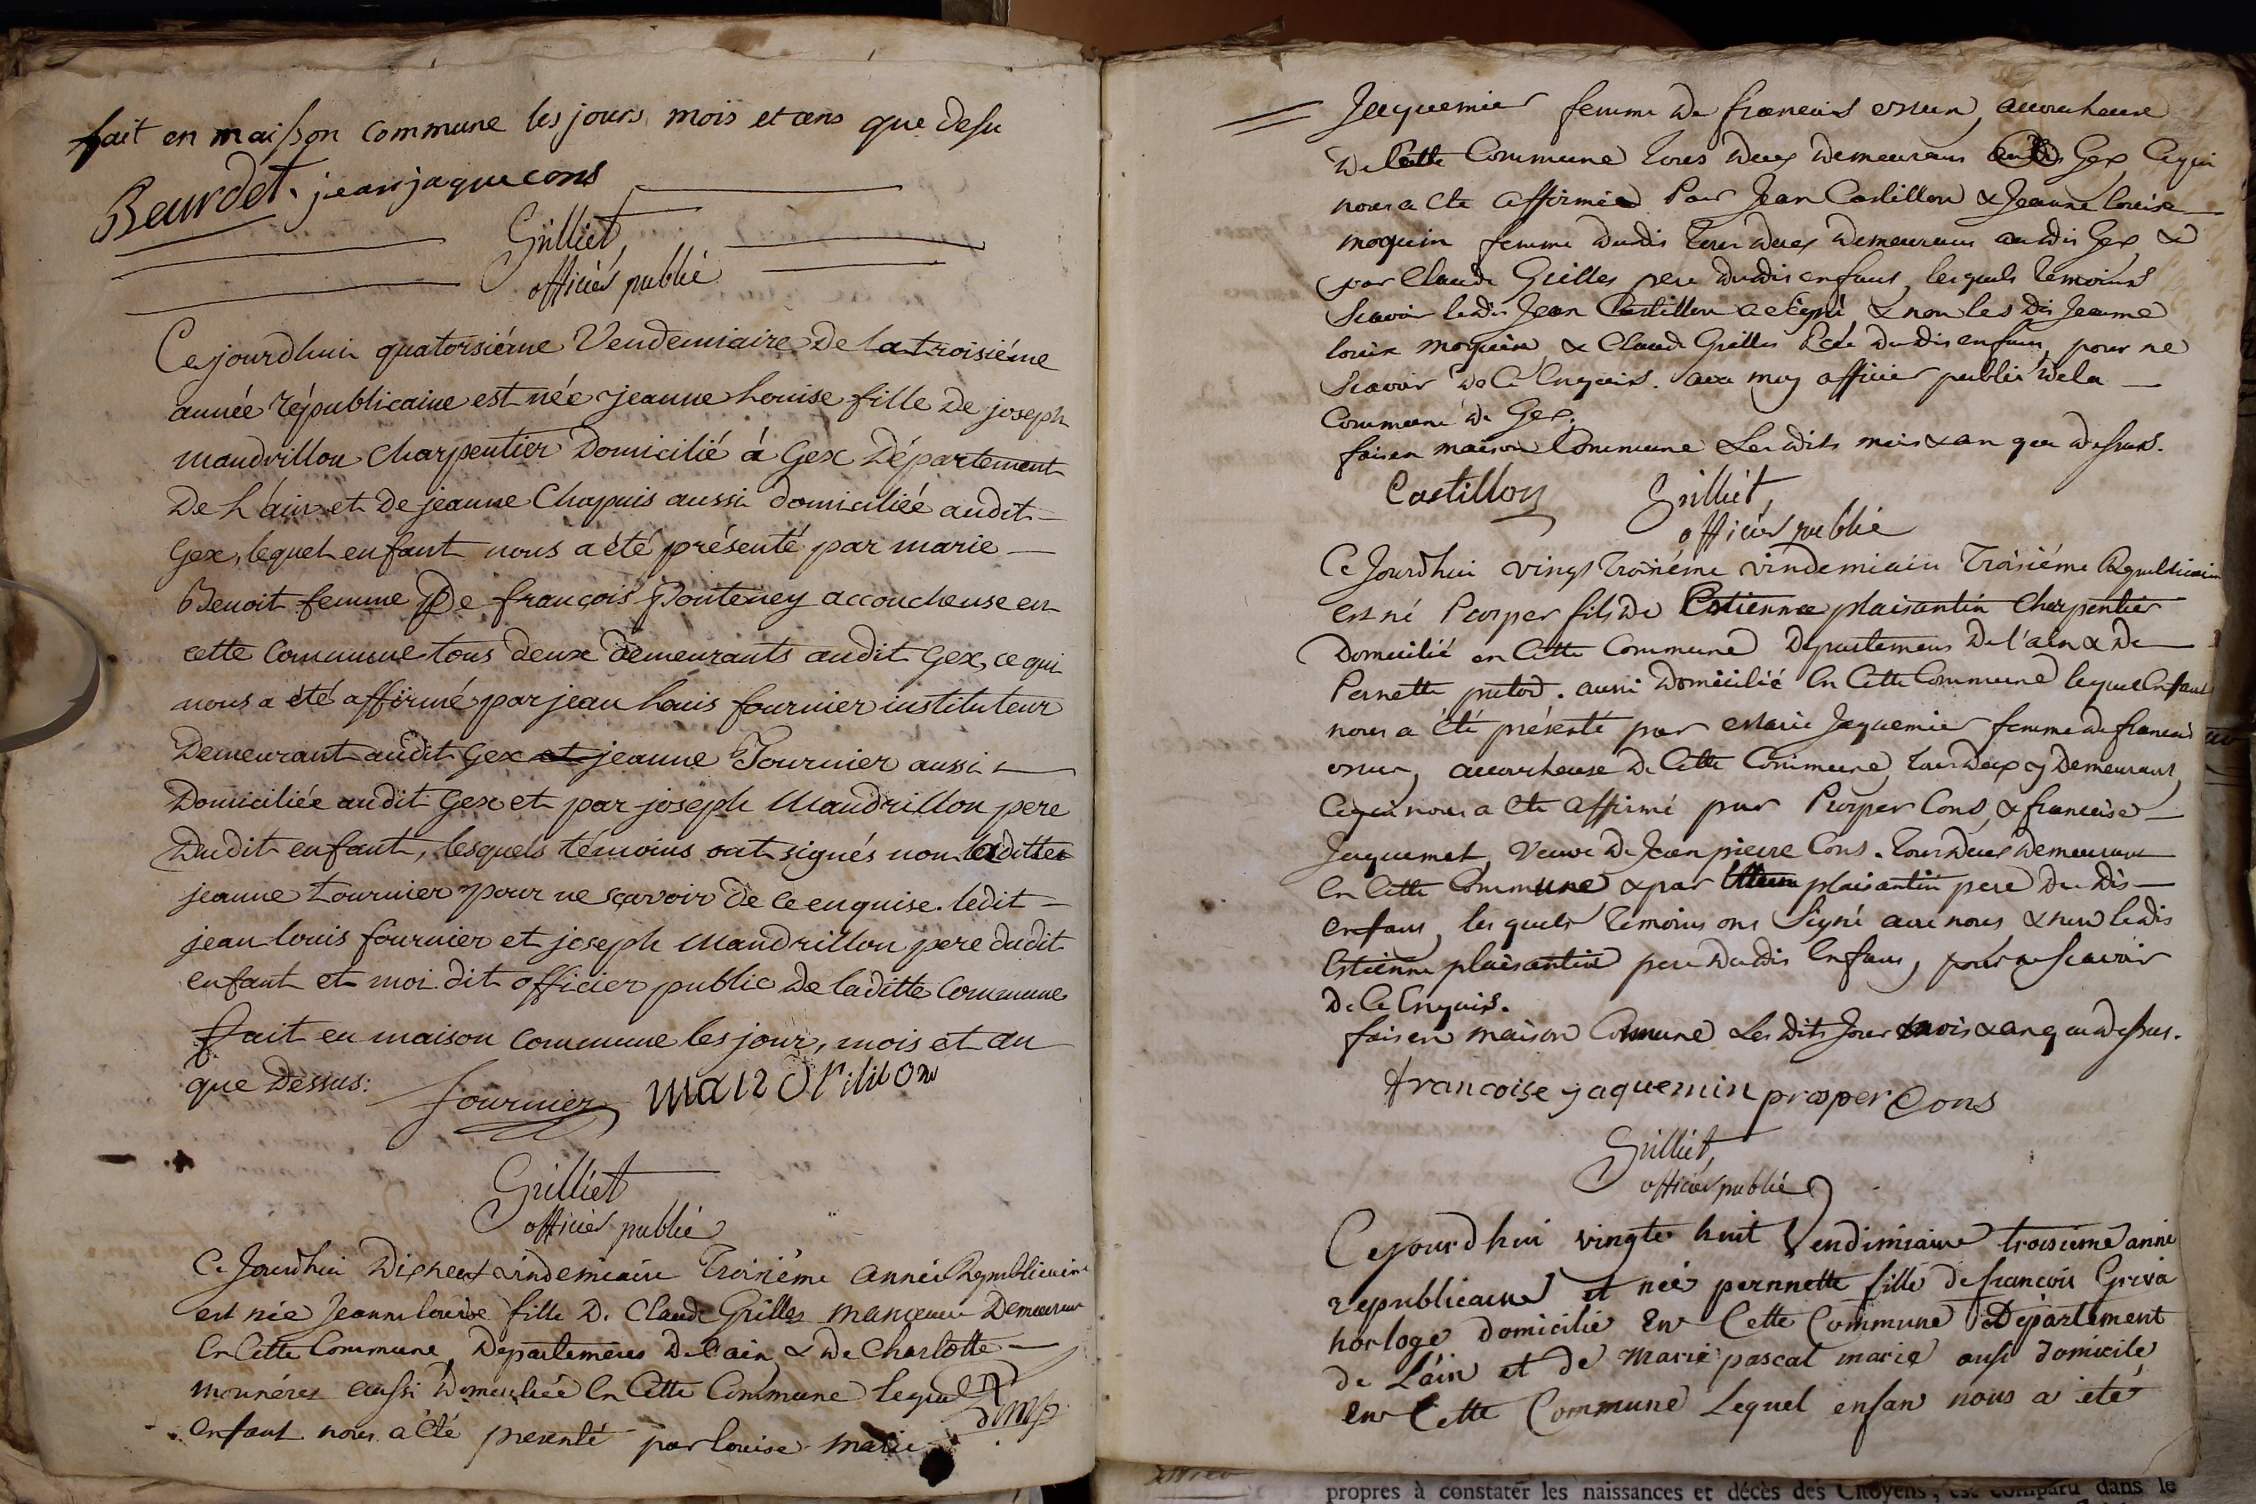 fait en maison commune les jours mois et ans que desu
Beurdet jean jaque cons
Grilliet
officiér publié
Ce jourdhui quatorsiéme Vendemiaire De la troisiéme
année républicaine est née jeanne Louise fille De joseph
mandrillon Charpentier Domicilié á Gex Département
De L'áin et De jeanne Chapuis aussi domiciliée audit
Gex, lequel enfant nous a été présenté par marie
Benoit femme De françois Ponteney accoucheuse en
cette Commune tous deux demeurants audit Gex, ce qui
nous a été affirmé par jean Louis fournier instituteur
Demeurant audit Gex et jeanne Tournier aussi
Domiciliée audit Gex et par joseph Mandrillon pere
Dudit enfant, lesquels témoins ont signés non laditte
jeanne tournier pour ne sçavoir De ce enquise. ledit
jean louis fournier et joseph Mandrillon pere dudit
enfant et moi dit officier public De laditte Commune
fait en maison commune les jour, mois et an
que Dessus: fournier mandrillon
Grilliet
officiér publié
Ce Jourdhui Dixneuf vindemiaire Troisiéme année Republicaine
est née Jeanne louise fille De Claude Grilles Demeurant
En Cette Commune Departement De l'ain & De Charlotte
aussi En Cette Commune lequel
enfant nous a été presenté par louise marie
Jaquemier femme De francois accoucheuse
De Cette Commune tous Deux Demeurans Gex Ce qui
nous a ete affirmé Par Jean Castillon & Jeanne louise
moquin femme Dudit tous Deux Demeurans audit Gex &
par Claude Grilles pere Dudit enfant, lesquels temoins
Scavoir ledit Jean Castillon a signé & non les dis Jeanne
louise moquin & Claude Grilles Pere Dudit enfant, pour ne
Scavoir De Ce Enquis. avec moy officier public De la
Commune De Gex.
fait en maison Commune Les Dits mois & an que Dessus.
Castillon Grilliet
officiér publié
Ce Jourdhui vingt troisiéme vindemiaire Troisiéme Republicaine
est né Prosper fils De Estienne plaisantin Charpentier
Domicilié en Cette Commune Departement De l'ain & De
Pernette aussi Domicilié En Cette Commune lequel Enfant
nous a été présenté par Marie Jaquemier femme De francois
accoucheuse De Cette Commune, tous Deux y Demeurant,
Ce qui nous a ete affirmé par Prosper Cons, & francoise
Jaquemet, veuve De Jean pierre Cons. tous Deux Demeurant
En Cette Commune & par plaisantin pere Du dis
enfant, les quels temoins ont Signé avec nous & non ledis
Estienne plaisantin pere Dudis Enfant, pour ne Scavoir
De Ce Enquis.
fait en maison Comune Les Dits Jour mois & an que Dessus.
francoise jaquemin prosper Cons
Grilliet
officiér publié
Cejourdhui vingte huit Vendimiaire troisieme année
republicaine et née pernnette fille de francois Griva
horloge domicilié En Cette Commune Département
de Láin et de marie pascal marie ausi domicile
en Cette Commune Lequel enfan nous a été
propres à constater les naissances et décès des Citoyens, est comparu dans le